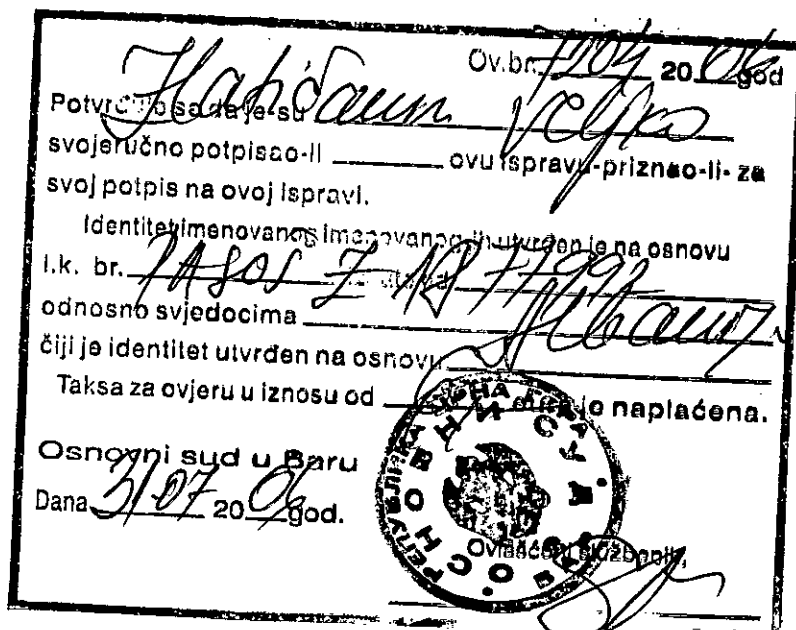 Ov.br. 7204 20 06 god
Potvrđuje se da je-su Veljko
svojeručno potpisao-li ______ ovu ispravu-priznao-li- za
svoj potpis na ovoj ispravi.
Identitet imenovanog imenovanog-ih utvrđen je na osnovu
l.k. br. PASOŠ Z
odnosno svjedocima
čiji je identitet utvrđen na osnovu
Taksa za ovjeru u iznosu od ______ je naplaćena.
Osnovni sud u Baru
Dana 3/07 20 06 god.
РЕПУБЛИКА ЦРНА ГОРА
ОСНОВНИ СУД
Ovlašćeni službenik,